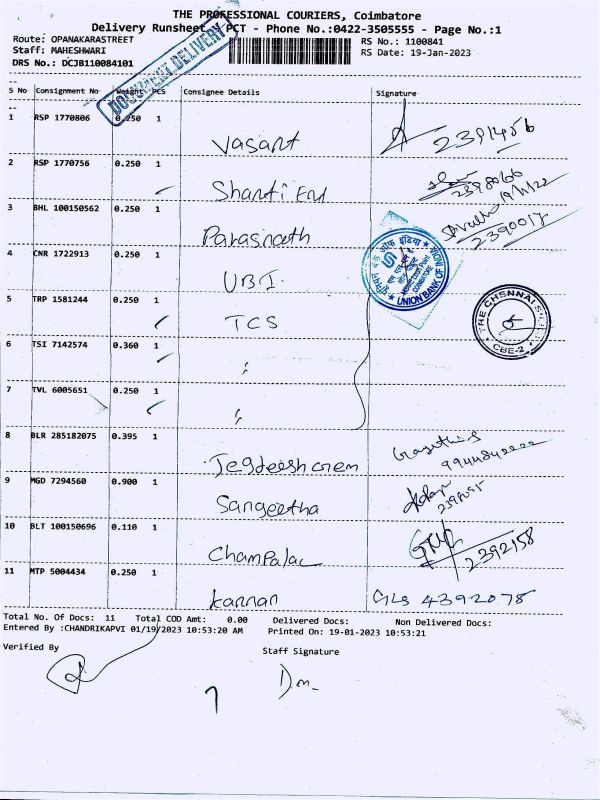 THE PROFESSIONAL COURIERS, Coimbatore
Delivery Runsheet - PCT - Phone No.:0422-3505555 - Page No.:1
Route: OPANAKARASTREET
RS No.: 1100841
Staff: MAHESHWARI
RS Date: 19-Jan-2023
DRS No.: DCJB110084101
DOCUMENT DELIVERY
S No Consignment No Weight PCS Consignee Details Signature
1 RSP 1770806 0.250 1 Vasant 2391456
2 RSP 1770756 0.250 1 Shanti Ent 2398066
19/1/22
3 BHL 100150562 0.250 1 Parasnath 2390017
4 CNR 1722913 0.250 1 UBI
UNION BANK OF
5 TRP 1581244 0.250 1 TCS
THE CHENNAI
CBE-2
6 TSI 7142574 0.360 1 ;
7 TVL 6005651 0.250 1 ;
8 BLR 285182075 0.395 1
9 MGD 7294560 0.900 1 Sangeetha
10 BLT 100150696 0.110 1 Champalac 2392158
11 MTP 5004434 0.250 1 Kannan 4392078
Total No. Of Docs: 11 Total COD Amt: 0.00 Delivered Docs: Non Delivered Docs:
Entered By :CHANDRIKAPVI 01/19/2023 10:53:20 AM Printed On: 19-01-2023 10:53:21
Verified By Staff Signature